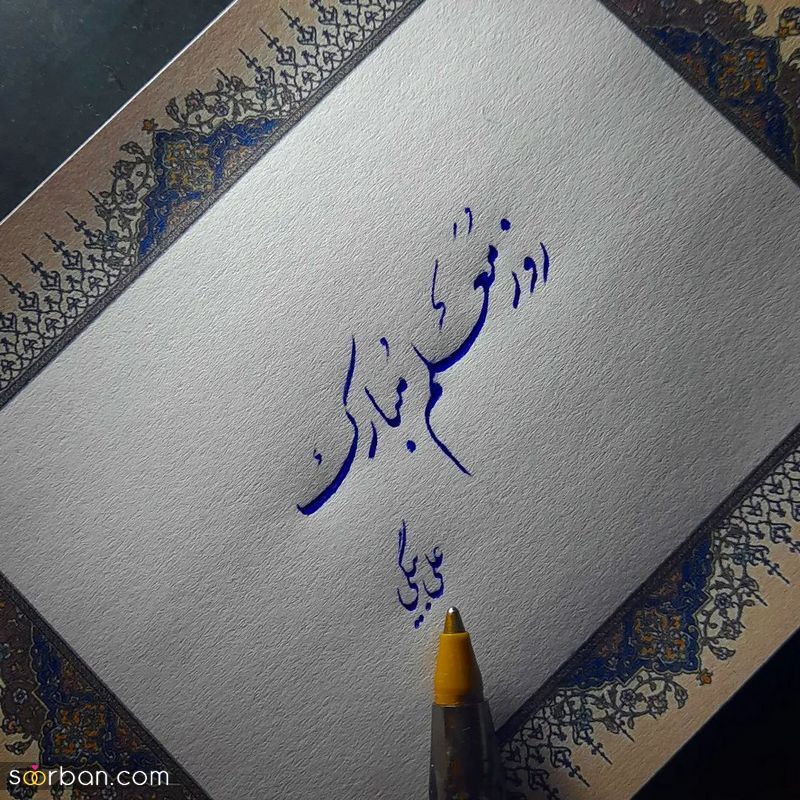 روز معلم مبارک
علی بیگی
soorban.com